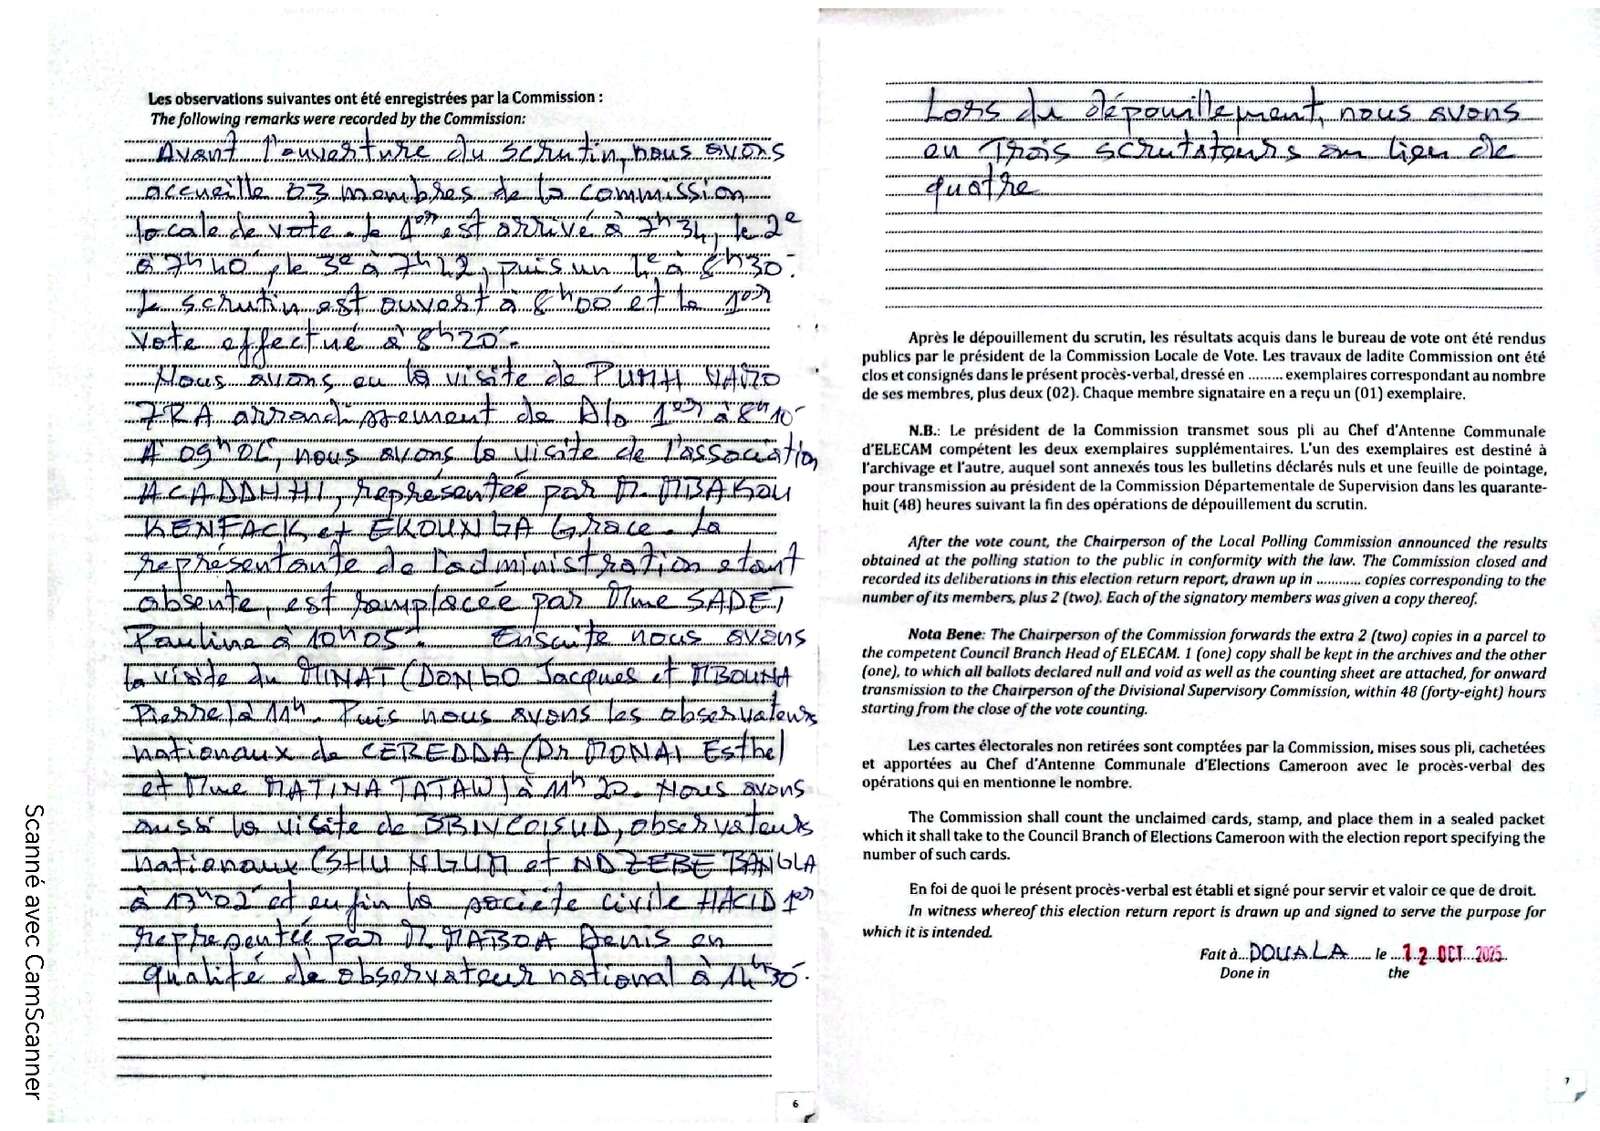 Les observations suivantes ont été enregistrées par la Commission :
The following remarks were recorded by the Commission:
Avant l'ouverture du scrutin, nous avons
accueille 03 membres de la commission
locale de vote. le 1er est arrivé à 7h34, le 2e
à 7h40', le 3e à 7h42, puis un 4e à 8h30'.
Le scrutin est ouvert à 8h00' et le 1er
vote effectué à 8h20'.
Nous avons eu la visite de
arrondissement de Dla 1er à 8h10'
A 09h06, nous avons la visite de l'association
ACADDHHI, représentée par M. MBAKOU
KENFACK et EKOUNGA Grace. La
représentante de l'administration etant
absente, est remplacée par Mme SADET
Pauline à 10h05'. Ensuite nous avons
la visite du MINAT (DONGO Jacques et MBOUNA
Pierre) à 11h. Puis nous avons les observateurs
nationaux de CEREDDA (Dr MONAI Esthel
et Mme MATINA TATAW) à 11h20. Nous avons
aussi la visite de observateurs
nationaux (SHU NGUM et NDZEBE BANGLA
à 13h02' et en fin la société civile HACID 1er
representée par M. MABOA Denis en
qualité de observateur national à 14h30'.
6
Lors du dépouillement, nous avons
eu Trois scrutateurs au lieu de
quatre
Après le dépouillement du scrutin, les résultats acquis dans le bureau de vote ont été rendus
publics par le président de la Commission Locale de Vote. Les travaux de ladite Commission ont été
clos et consignés dans le présent procès-verbal, dressé en ......... exemplaires correspondant au nombre
de ses membres, plus deux (02). Chaque membre signataire en a reçu un (01) exemplaire.
N.B.: Le président de la Commission transmet sous pli au Chef d'Antenne Communale
d'ELECAM compétent les deux exemplaires supplémentaires. L'un des exemplaires est destiné à
l'archivage et l'autre, auquel sont annexés tous les bulletins déclarés nuls et une feuille de pointage,
pour transmission au président de la Commission Départementale de Supervision dans les quarante-
huit (48) heures suivant la fin des opérations de dépouillement du scrutin.
After the vote count, the Chairperson of the Local Polling Commission announced the results
obtained at the polling station to the public in conformity with the law. The Commission closed and
recorded its deliberations in this election return report, drawn up in ............ copies corresponding to the
number of its members, plus 2 (two). Each of the signatory members was given a copy thereof.
Nota Bene: The Chairperson of the Commission forwards the extra 2 (two) copies in a parcel to
the competent Council Branch Head of ELECAM. 1 (one) copy shall be kept in the archives and the other
(one), to which all ballots declared null and void as well as the counting sheet are attached, for onward
transmission to the Chairperson of the Divisional Supervisory Commission, within 48 (forty-eight) hours
starting from the close of the vote counting.
Les cartes électorales non retirées sont comptées par la Commission, mises sous pli, cachetées
et apportées au Chef d'Antenne Communale d'Elections Cameroon avec le procès-verbal des
opérations qui en mentionne le nombre.
The Commission shall count the unclaimed cards, stamp, and place them in a sealed packet
which it shall take to the Council Branch of Elections Cameroon with the election report specifying the
number of such cards.
En foi de quoi le présent procès-verbal est établi et signé pour servir et valoir ce que de droit.
In witness whereof this election return report is drawn up and signed to serve the purpose for
which it is intended.
Fait à...DOUALA...... le ...12 OCT 2025
Done in the
7
Scanné avec CamScanner